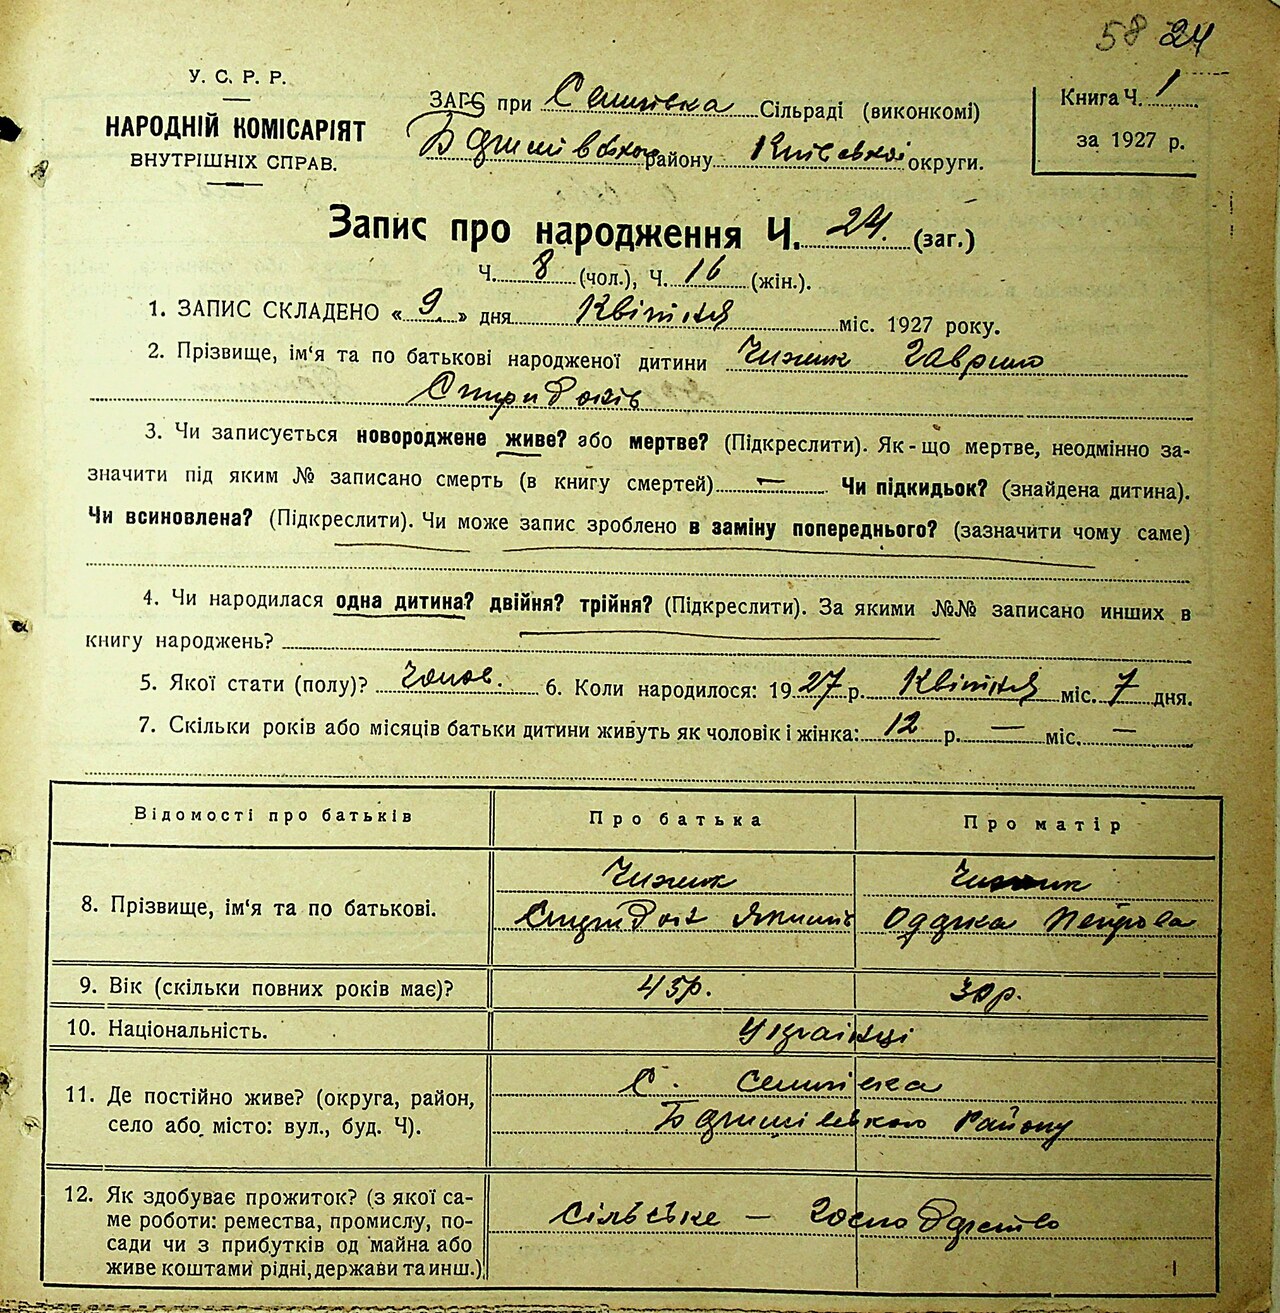 58 24
У. С. Р. Р.
НАРОДНІЙ КОМІСАРІЯТ
ВНУТРІШНІХ СПРАВ.
ЗАГС при Семипівка Сільраді (виконкомі)
району Київської округи.
Книга Ч. 1
за 1927 р.
Запис про народження Ч. 24. (заг.)
Ч. 8 (чол.), Ч. 16 (жін.).
1. ЗАПИС СКЛАДЕНО « 9. » дня Квітня міс. 1927 року.
2. Прізвище, ім‘я та по батькові народженої дитини Чижик Гаврило
Спиридонів
3. Чи записується новороджене живе? або мертве? (Підкреслити). Як-що мертве, неодмінно за-
значити під яким № записано смерть (в книгу смертей) — Чи підкидьок? (знайдена дитина).
Чи всиновлена? (Підкреслити). Чи може запис зроблено в заміну попереднього? (зазначити чому саме)
4. Чи народилася одна дитина? двійня? трійня? (Підкреслити). За якими №№ записано инших в
книгу народжень?
5. Якої стати (полу)? Чолов. 6. Коли народилося: 1927 р. Квітня міс. 7 дня.
7. Скільки років або місяців батьки дитини живуть як чоловік і жінка: 12 р. — міс. —
Відомості про батьків Про батька Про матір
Чижик Чижик
8. Прізвище, ім‘я та по батькові. Спиридон Якимів Одарка Петрова
9. Вік (скільки повних років має)? 45р. 30р.
10. Національність. Українці
11. Де постійно живе? (округа, район,
село або місто: вул., буд. Ч).
С.
Району
12. Як здобуває прожиток? (з якої са-
ме роботи: ремества, промислу, по-
сади чи з прибутків од майна або
живе коштами рідні, держави та инш.)
сільське — господарство